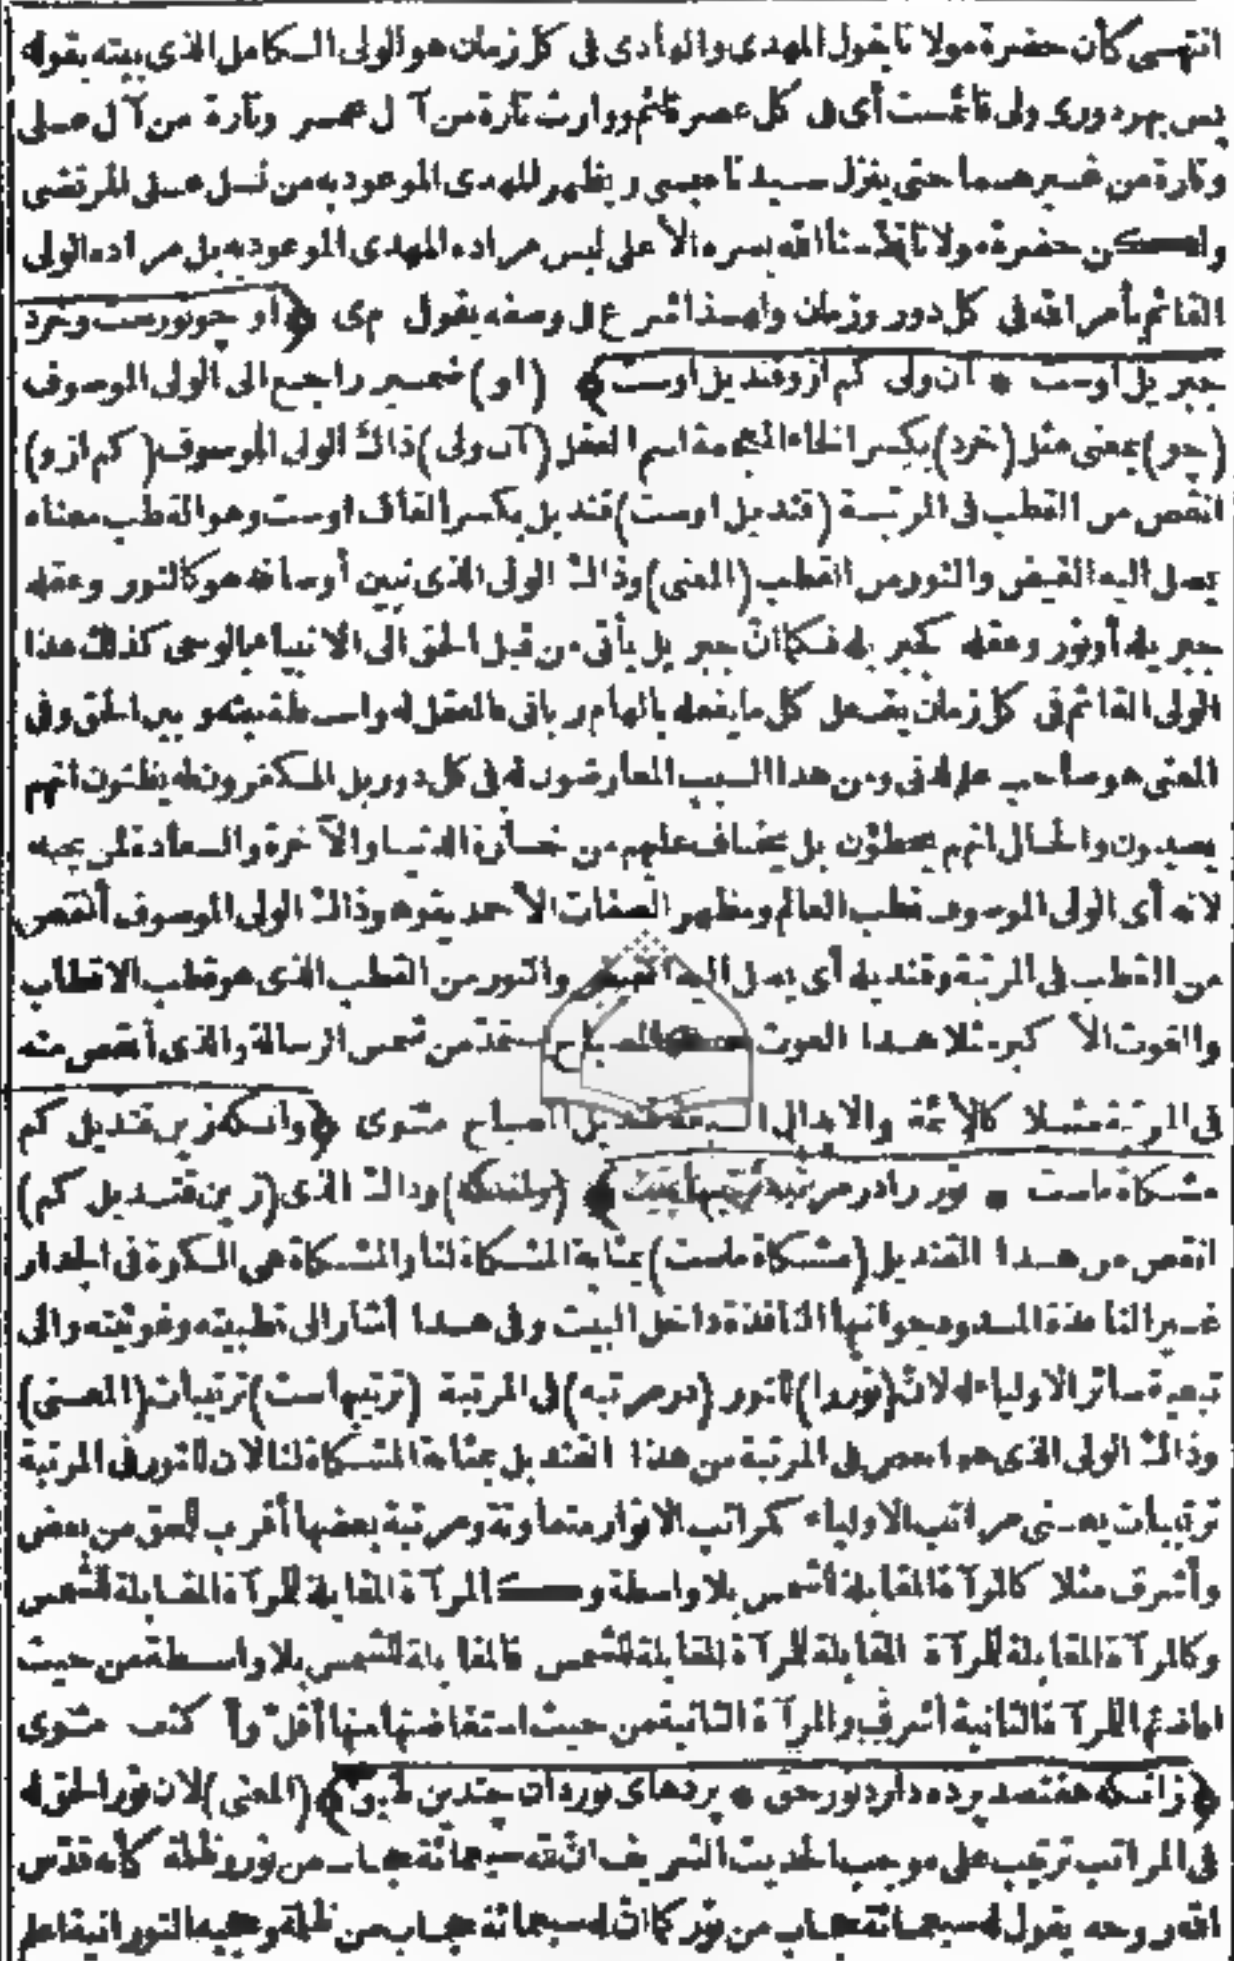 انتهى كأن حضرة مولانا يقول المهدى والهادى فى كل زمان هو الولى الكامل الذى بينه بقوله
پس بهر دورى ولى قائمست أى فى كل عصر قائم ووارث تارة من آل عمر وتارة من آل على
وتارة من غيرهما حتى ينزل سيدنا عيسى ويظهر المهدى الموعود به من نسل على المرتضى
ولكن حضرة مولانا قدّسنا الله بسره الأعلى ليس مراده المهدى الموعود به بل مراده الولى
القائم بأمر الله فى كل دور وزمان ولهذا شرع فى وصفه يقول م ى ﴿او چو نورست وخرد
جبريل اوست * آن ولى كم ازو قنديل اوست﴾ (او) ضمير راجع الى الولى الموصوف
(چو) بمعنى مثل (خرد) بكسر الخاء المعجمة اسم العقل (آن ولى) ذاك الولى الموصوف (كم ازو)
انقص من القطب فى المرتبة (قنديل اوست) قنديل بكسر القاف اوست وهو القطب معناه
يصل اليه الفيض والنور من القطب (المعنى) وذاك الولى الذى تبين أوصافه هو كالنور وعقله
جبريله أو نور وعقله كجبريله فكما انّ جبريل يأتى من قبل الحق الى الانبياء بالوحى كذلك هذا
الولى القائم فى كل زمان يفعل كل ما يفعله بالهام ربانى فالعقل له واسطة بينه وبين الحق وفى
المعنى هو صاحب علم لدنى ومن هذا السبب المعارضون له فى كل دور بل المكفرون له يظنون انهم
يصيبون والحال انهم مخطؤن بل يخاف عليهم من خسارة الدنيا والآخرة والسعادة لمن يحبه
لانه أى الولى الموصوف قطب العالم ومظهر الصفات الأحمدية وهو وذاك الولى الموصوف أنقص
من القطب فى المرتبة وقنديله أى يصل اليه الفيض والنور من القطب الذى هو قطب الاقطاب
والغوث الأكبر مثلا هذا الغوث كالمصباح من شمس الرسالة والذى أنقص منه
فى المرتبة مثلا كالأئمة والابدال السبعة قنديل المصباح مثنوى ﴿وانكه زين قنديل كم
مشكاة ماست * نور را در مرتبه ترتيبهاست﴾ (وانكه) وذاك الذى (زين قنديل كم)
انقص من هذا القنديل (مشكاة ماست) بمثابة المشكاة لنا والمشكاة هى الكوة فى الجدار
غير النافذة المسدود جوانبها النافذة داخل البيت وفى هذا أشار الى قطبيته وغوثيته والى
تبعية سائر الاولياء له لانّ (نور را) للنور (در مرتبه) فى المرتبة (ترتيبهاست) ترتيبات (المعنى)
وذاك الولى الذى هو انقص فى المرتبة من هذا القنديل بمثابة المشكاة لنا لان للنور فى المرتبة
ترتيبات يعنى مراتب الاولياء كمراتب الانوار متفاوتة ومرتبة بعضها أقرب للحق من بعض
وأشرف مثلا كالمرآة المقابلة للشمس بلا واسطة وكالمرآة المقابلة للمرآة المقابلة للشمس
وكالمرآة المقابلة للمرآة المقابلة للمرآة المقابلة للشمس فالمقابلة للشمس بلا واسطة من حيث
افاضتها للمرآة الثانية أشرف والمرآة الثانية من حيث استفاضتها منها أقلّ وأ كثف مثنوى
﴿زانكه هفتصد پرده دارد نور حق * پردهاى نور دان چندين طبق﴾ (المعنى) لان نور الحق له
فى المراتب ترتيب على موجب الحديث الشريف انّ لله سبعمائة حجاب من نور وظلمة كأنه قدّس
الله روحه يقول له سبعمائة حجاب من نور كما انّ له سبعمائة حجاب من ظلمة وحجبه النورانية اعلم